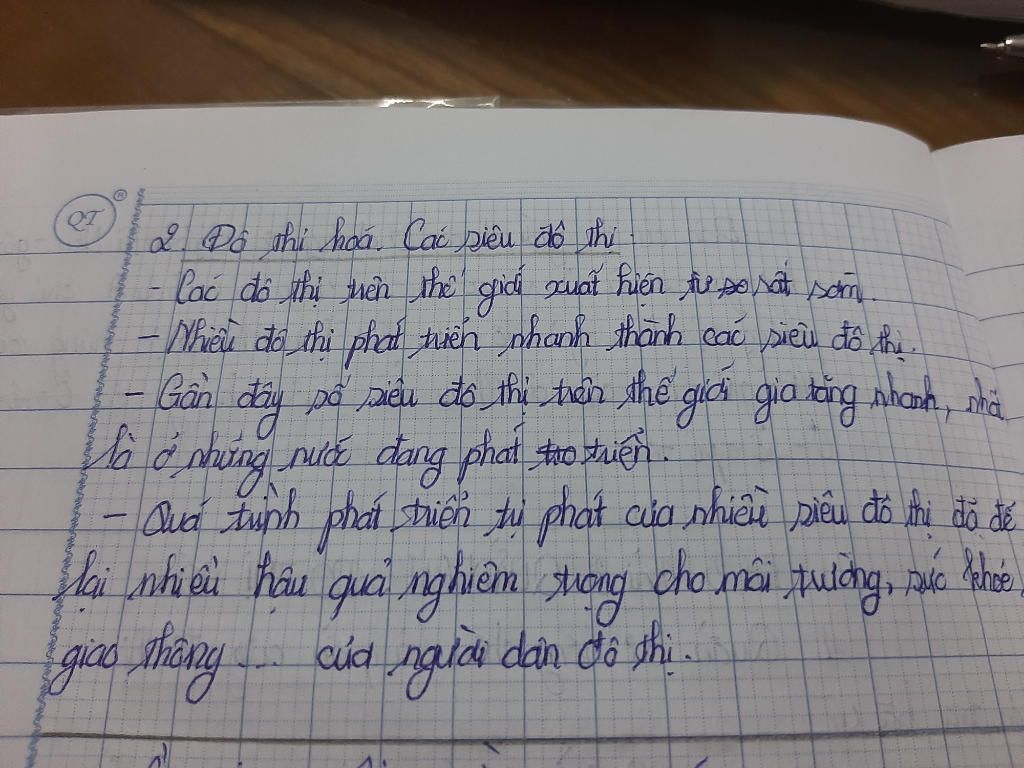 QT ®
2. Đô thị hoá. Các siêu đô thị.
- Các đô thị trên thế giới xuất hiện từ so rất sớm.
- Nhiều đô thị phát triển nhanh thành các siêu đô thị.
- Gần đây số siêu đô thị trên thế giới gia tăng nhanh, nhấ
là ở những nước đang phát tro triển.
- Quá trình phát triển tự phát của nhiều siêu đô thị đã để
lại nhiều hậu quả nghiêm trọng cho môi trường, sức khỏe,
giao thông... của người dân đô thị.